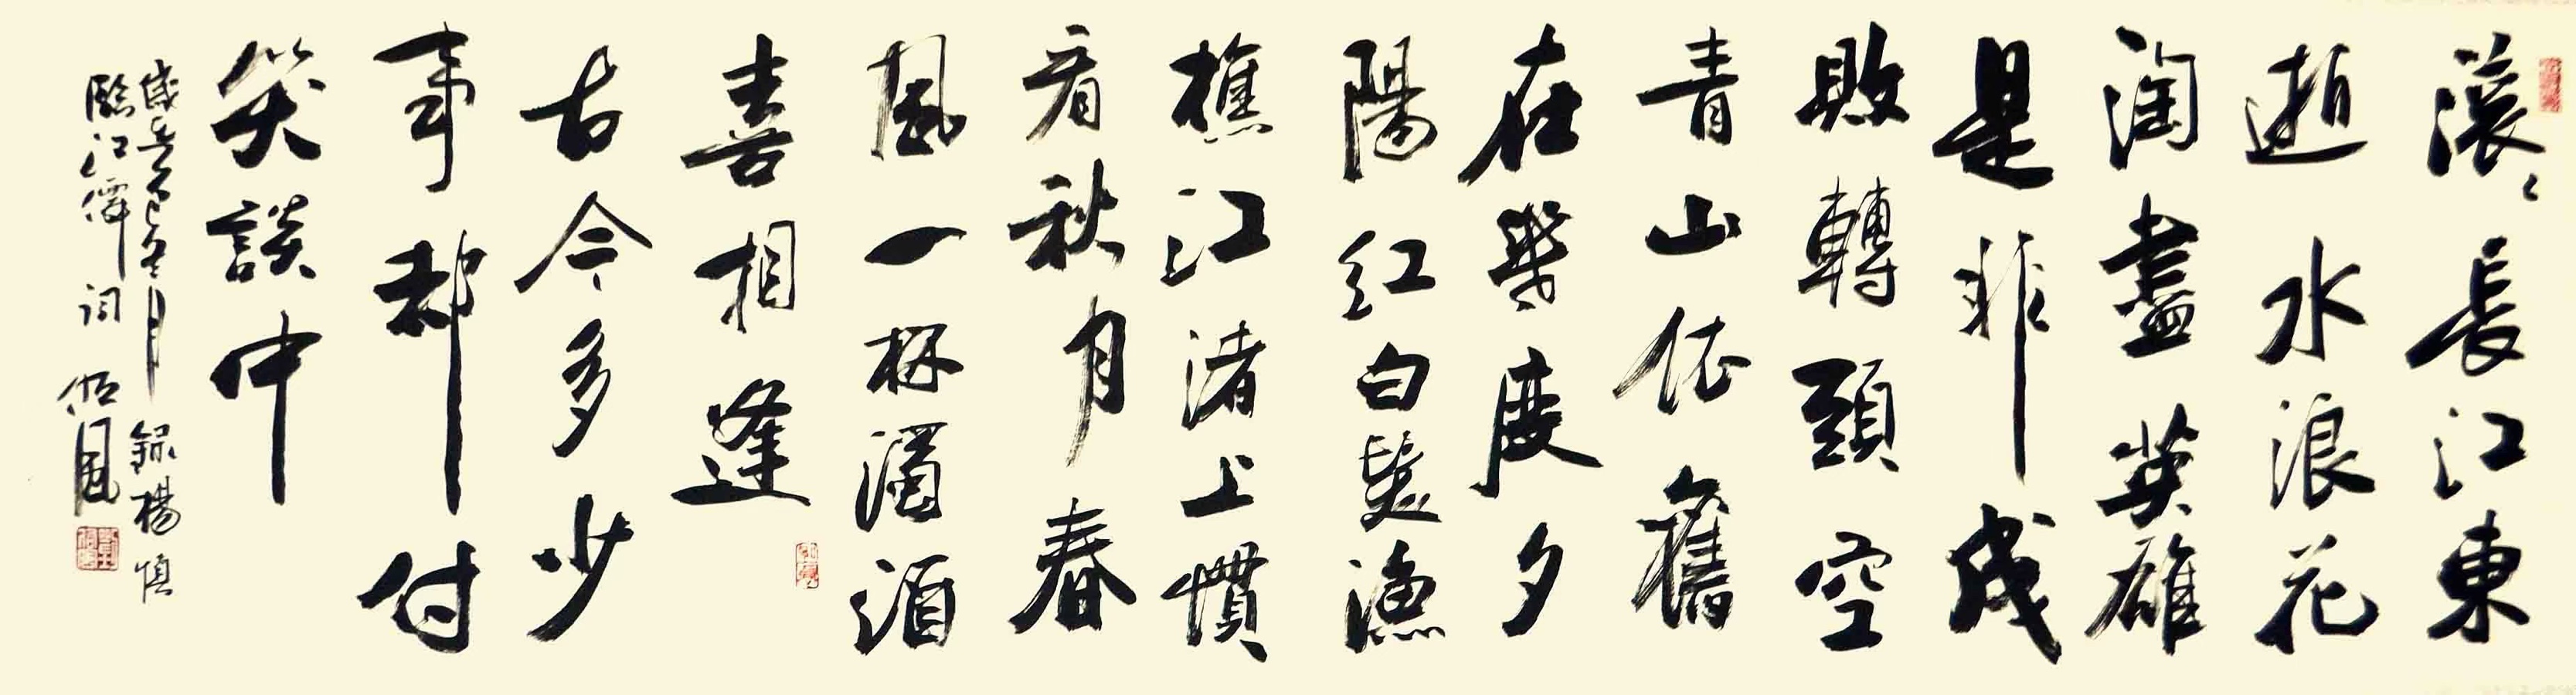 滚〻長江東
逝水浪花
淘盡英雄
是非成
敗轉頭空
青山依舊
在幾度夕
陽紅白髮漁
樵江渚上慣
看秋月春
風一杯濁酒
喜相逢
古今多少
事都付
笑談中
歲冬月錄楊慎
臨江僊詞